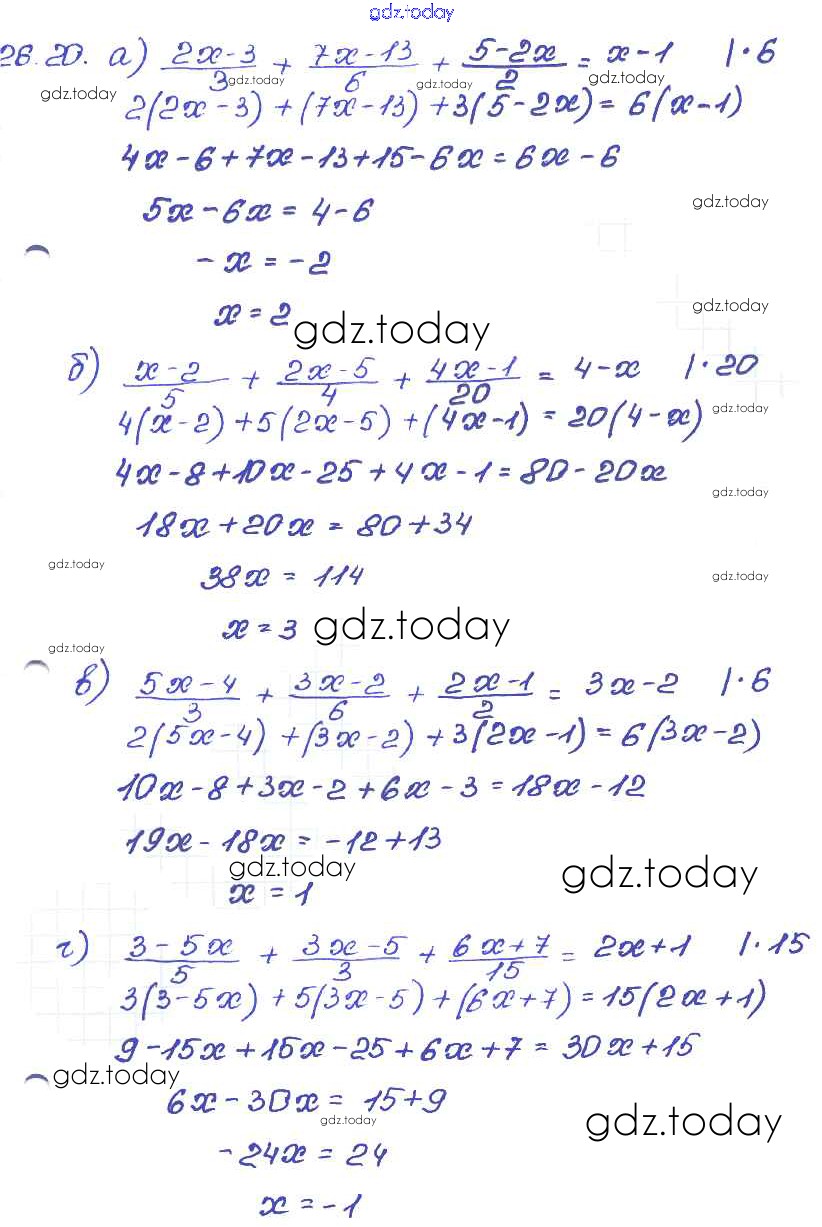 gdz.today
26.20. а) (2x-3)/3 + (7x-13)/6 + (5-2x)/2 = x-1 |·6
gdz.today gdz.today gdz.today gdz.today
2(2x-3)+(7x-13)+3(5-2x)=6(x-1)
4x-6+7x-13+15-6x=6x-6
5x-6x=4-6
gdz.today
-x=-2
x=2
gdz.today
gdz.today
б) (x-2)/5 + (2x-5)/4 + (4x-1)/20 = 4-x |·20
4(x-2)+5(2x-5)+(4x-1)=20(4-x)
gdz.today
4x-8+10x-25+4x-1=80-20x
gdz.today
18x+20x=80+34
gdz.today
38x=114
gdz.today
x=3
gdz.today
gdz.today
в) (5x-4)/3 + (3x-2)/6 + (2x-1)/2 = 3x-2 |·6
2(5x-4)+(3x-2)+3(2x-1)=6(3x-2)
10x-8+3x-2+6x-3=18x-12
19x-18x=-12+13
gdz.today gdz.today
x=1
г) (3-5x)/5 + (3x-5)/3 + (6x+7)/15 = 2x+1 |·15
3(3-5x)+5(3x-5)+(6x+7)=15(2x+1)
9-15x+15x-25+6x+7=30x+15
gdz.today
6x-30x=15+9
gdz.today gdz.today
-24x=24
x=-1